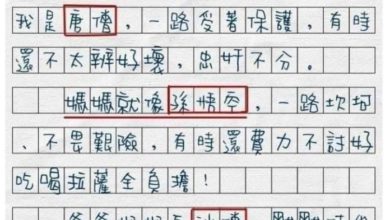 我是唐僧，一路受著保護，有時
還不太辨好壞，忠奸不分。
媽媽就像孫悟空，一路坎坷
、不畏艱險，有時還費力不討好
吃喝拉薩全負擔！